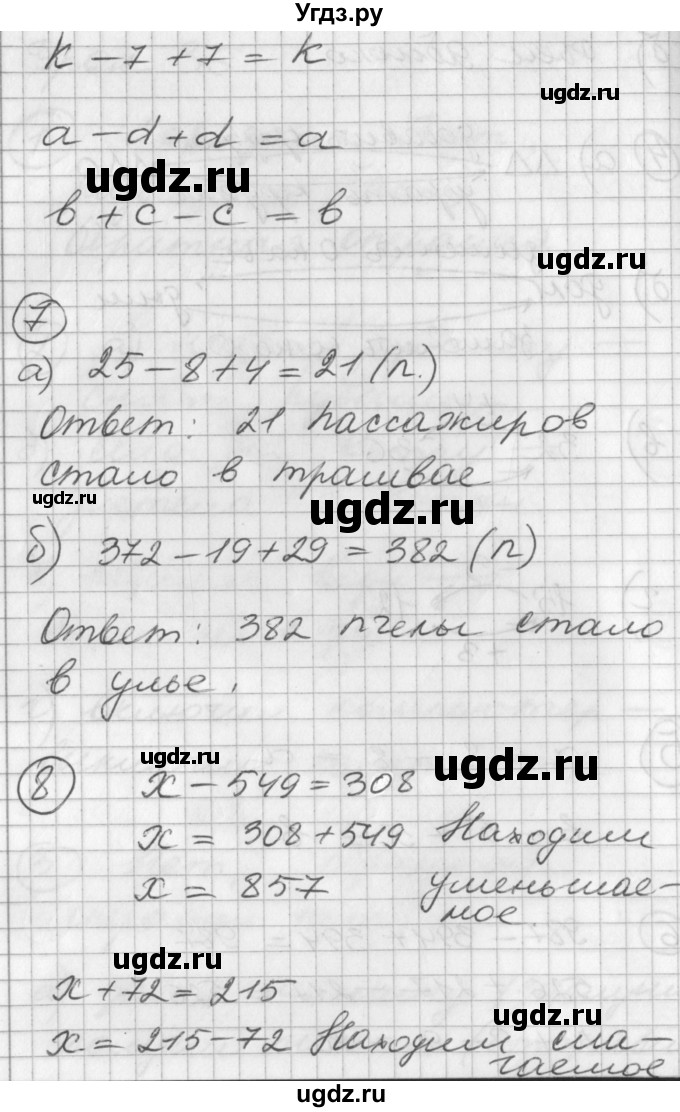 Угдз.ру
k - 7 + 7 = k
ugdz.ru
a - d + d = a
ugdz.ru
b + c - c = b
ugdz.ru
7
а) 25 - 8 + 4 = 21 (п.)
Ответ: 21 пассажиров
стало в трамвае
ugdz.ru
ugdz.ru
б) 372 - 19 + 29 = 382 (п)
Ответ: 382 пчелы стало
в улье.
ugdz.ru
ugdz.ru
8 x - 549 = 308
x = 308 + 549 Находим
x = 857 уменьшае-
мое
ugdz.ru
ugdz.ru
x + 72 = 215
x = 215 - 72 Находим сла-
гаемое
ugdz.ru
ugdz.ru